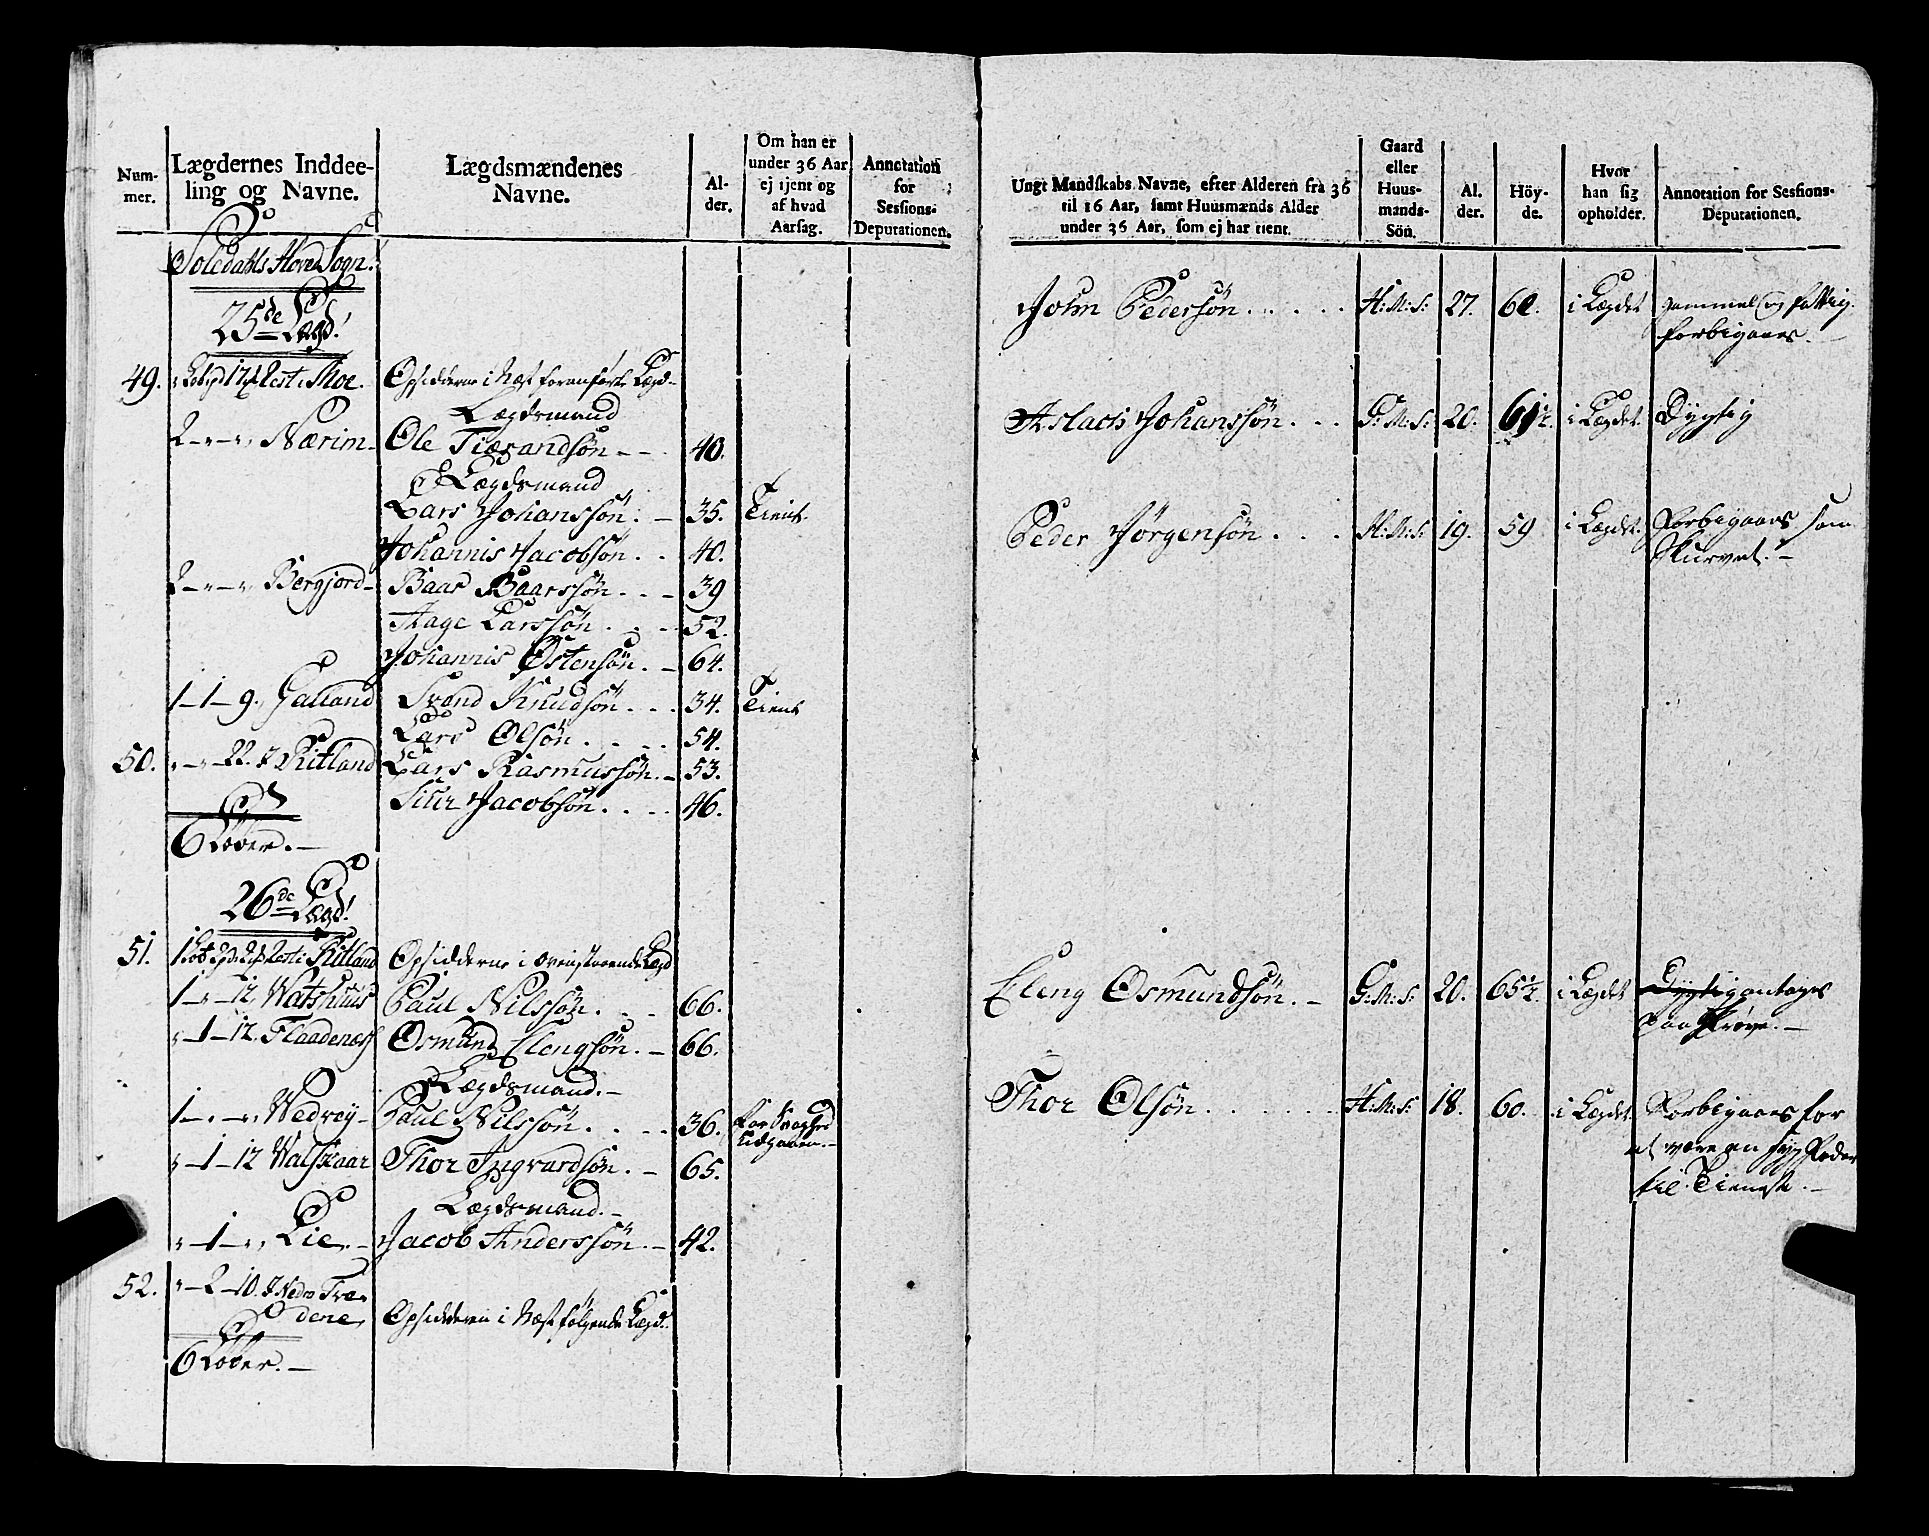 Num-
mer.
Lægdernes Inddee-
ling og Navne.
Lægdsmændenes
Navne.
Al-
der.
Om han er
under 36 Aar
ej tjent og
af hvad
Aarsag.
Annotation
for
Sessions-
Deputationen.
Soledahls Hoved Sogn.
25de Lægd.
49. 17 Rest i Moe. Opsidderne i Næst foranførte Lægd
Lægdsmand
2 - " - " Nærim - Ole Tierandsön - - 40.
Lægdsmand
Lars Johanssön. - 35. Tient
Johannis Jacobsön . . 40.
2 - " - " Bergjord - Baar Baarssön . . - 39
Aage Larssön . . - 52.
Johannis Östensön. - 64.
1 - 1 - 9. Galland Svend Knudsön . . . 34. Tient
Lars Olsön . . . . 54.
50. " - " - 22. I Ritland Lars Rasmussön. - 53.
Siur Jacobsön. . . . 46.
6 Löber. -
26de Lægd.
51. Rest i Ritland Opsidderne i ovenstaaende Lægd
1 - " - 12. Watshuus Paul Nilssön . . . 66.
" - 1 - 12. Flaadenæs Osmund Elengsön. - 66.
Lægdsmand. -
1 - " - " Wedrey - Paul Nilssön . . . . 36. For Svaghed
Udgaaen. -
" - 1 - 12 Walskaar Thor Ingvardsön. - 65.
Lægdsmand. -
" - 1 - " Lie - Jacob Anderssön - 42.
52. " - 2 - 10. I Nedre Træ-
dene Opsidderen i Næstfølgende Lægd.
6 Löber. -
Ungt Mandskabs Navne, efter Alderen fra 36
til 16 Aar, samt Huusmænds Alder
under 36 Aar, som ej har tient.
Gaard
eller
Huus-
mands-
Sön.
Al-
der.
Höy-
de.
Hvor
han sig
opholder.
Annotation for Sessions-
Deputationen.
John Pedersön . . . . . H: M: S: 27. 60. i Lægdet gammel og
forbigaaes. -
Aslach Johanssön . . . G: M: S: 20. 61½. i Lægdet Dygtig
Peder Jörgensön . . . H: M: S: 19. 59 i Lægdet. Forbigaaes som
Skurvet. -
Eleng Osmundsön. - G: M: S: 20. 65½. i Lægdet Dygtig antages
paa Prøve. -
Thor Olsön . . . . . . H: M: S: 18. 60. i Lægdet Forbigaaes for
at være en syg Fader
til Tieneste. -